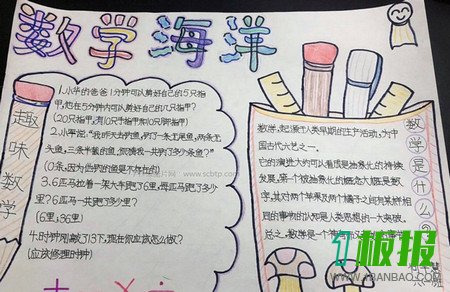 数学海洋
趣味数学
1.小华的爸爸1分钟可以剪好自己的5只指
甲,他在5分钟内可以剪好自己的几只指甲?
(20只指甲,有10只手指甲和10只脚指甲)
2.小军说:"我昨天去钓鱼,钓了一条无尾鱼,两条无
头鱼,三条半截的鱼,你猜我一共钓了多少条鱼?"
(0条,因为他钓的鱼是不存在的)
3.6匹马拉着一架大车跑了6里,每匹马跑了多少
里?6匹马一共跑了多少里?
(6里;36里)
4.时钟刚敲了13下,现在你应该怎么做?
(应该修理时钟)
数学是什么?
数学,起源于人类早期的生产活动,为中
国古代六艺之一。
它的演进大约可以看成是抽象化的持续
发展,第一个被抽象化的概念大概是数
字,其对两个苹果及两个橘子之间有某样相
同的事物的认知是人类思想的一大突破。
总之,数学是一个
www.scbtp.com
板报
WWW.1BANBAO.COM